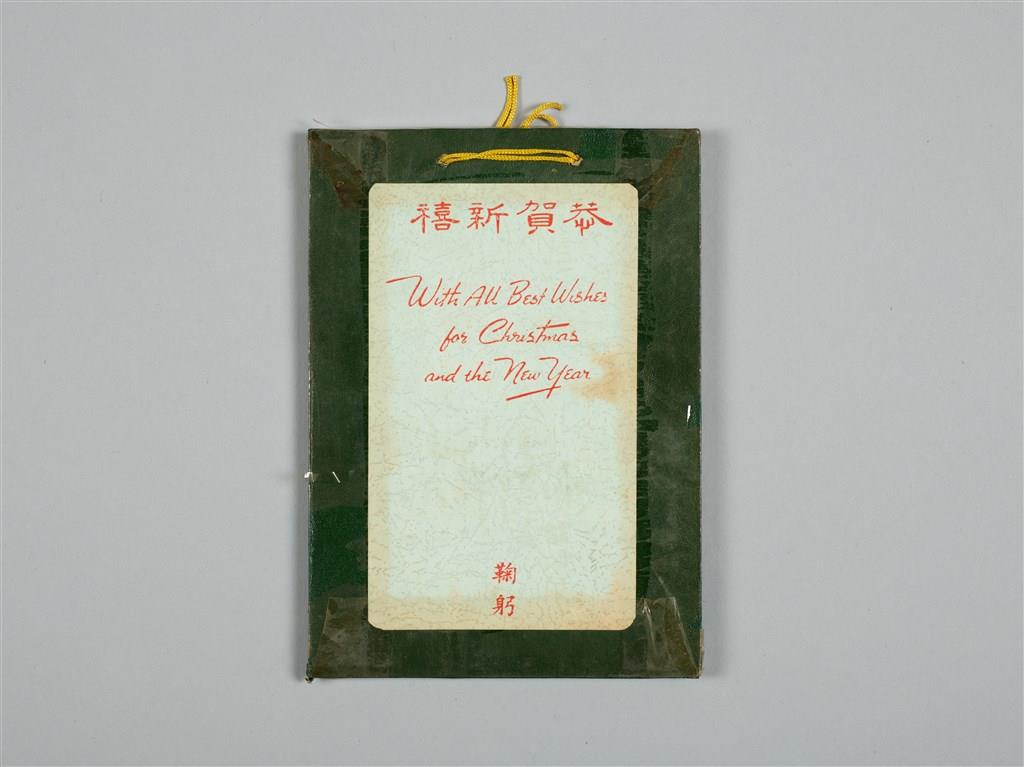 恭賀新禧
With All Best Wishes
for Christmas
and the New Year
鞠
躬